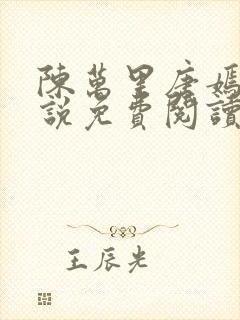 陳萬里唐嫣
說免費閱讀
王辰光